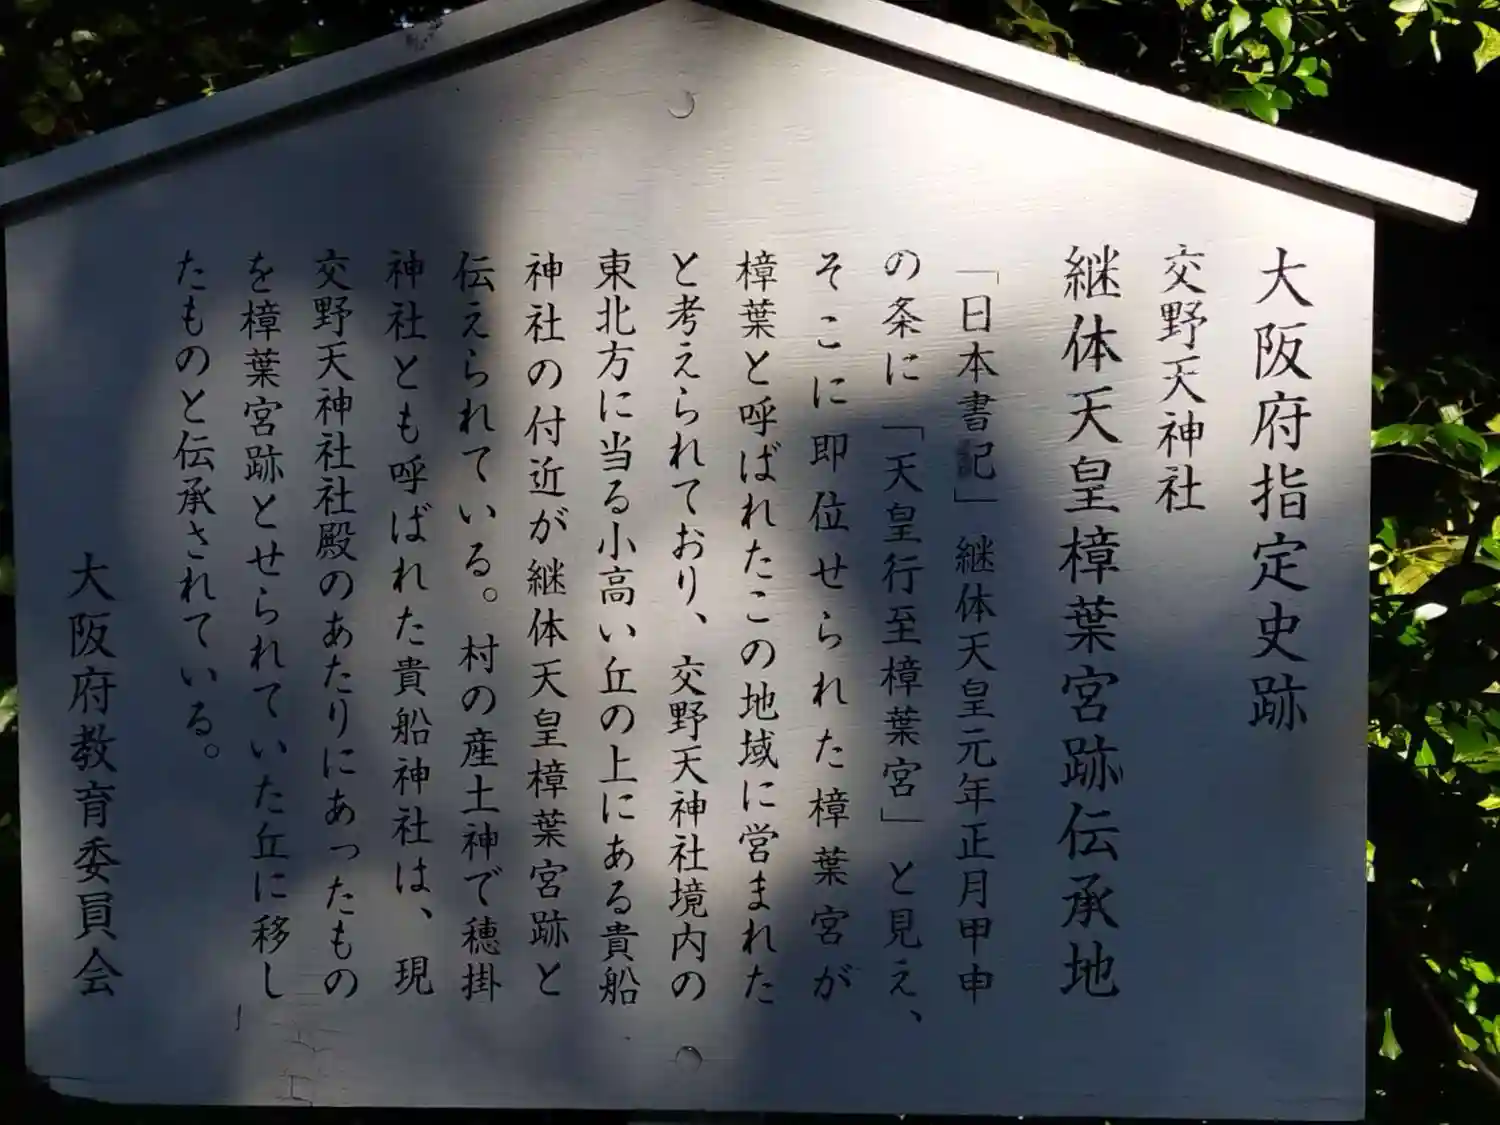 大阪府指定史跡
交野天神社
継体天皇樟葉宮跡伝承地
「日本書記」継体天皇元年正月甲申
の条に「天皇行至樟葉宮」と見え、
そこに即位せられた樟葉宮が
樟葉と呼ばれたこの地域に営まれた
と考えられており、交野天神社境内の
東北方に当る小高い丘の上にある貴船
神社の付近が継体天皇樟葉宮跡と
伝えられている。村の産土神で穂掛
神社とも呼ばれた貴船神社は、現
交野天神社社殿のあたりにあったもの
を樟葉宮跡とせられていた丘に移し
たものと伝承されている。
大阪府教育委員会